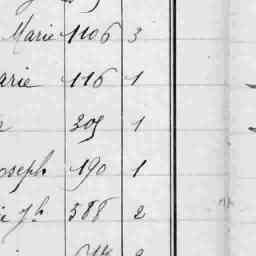 Marie 1106 3
arie 116 1
305 1
oseph 190 1
Jh 388 2